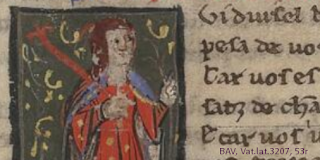 Si duisel d
pesa de uo
Car uos es
satz de cha
E car uos
BAV, Vat.lat.3207, 53r